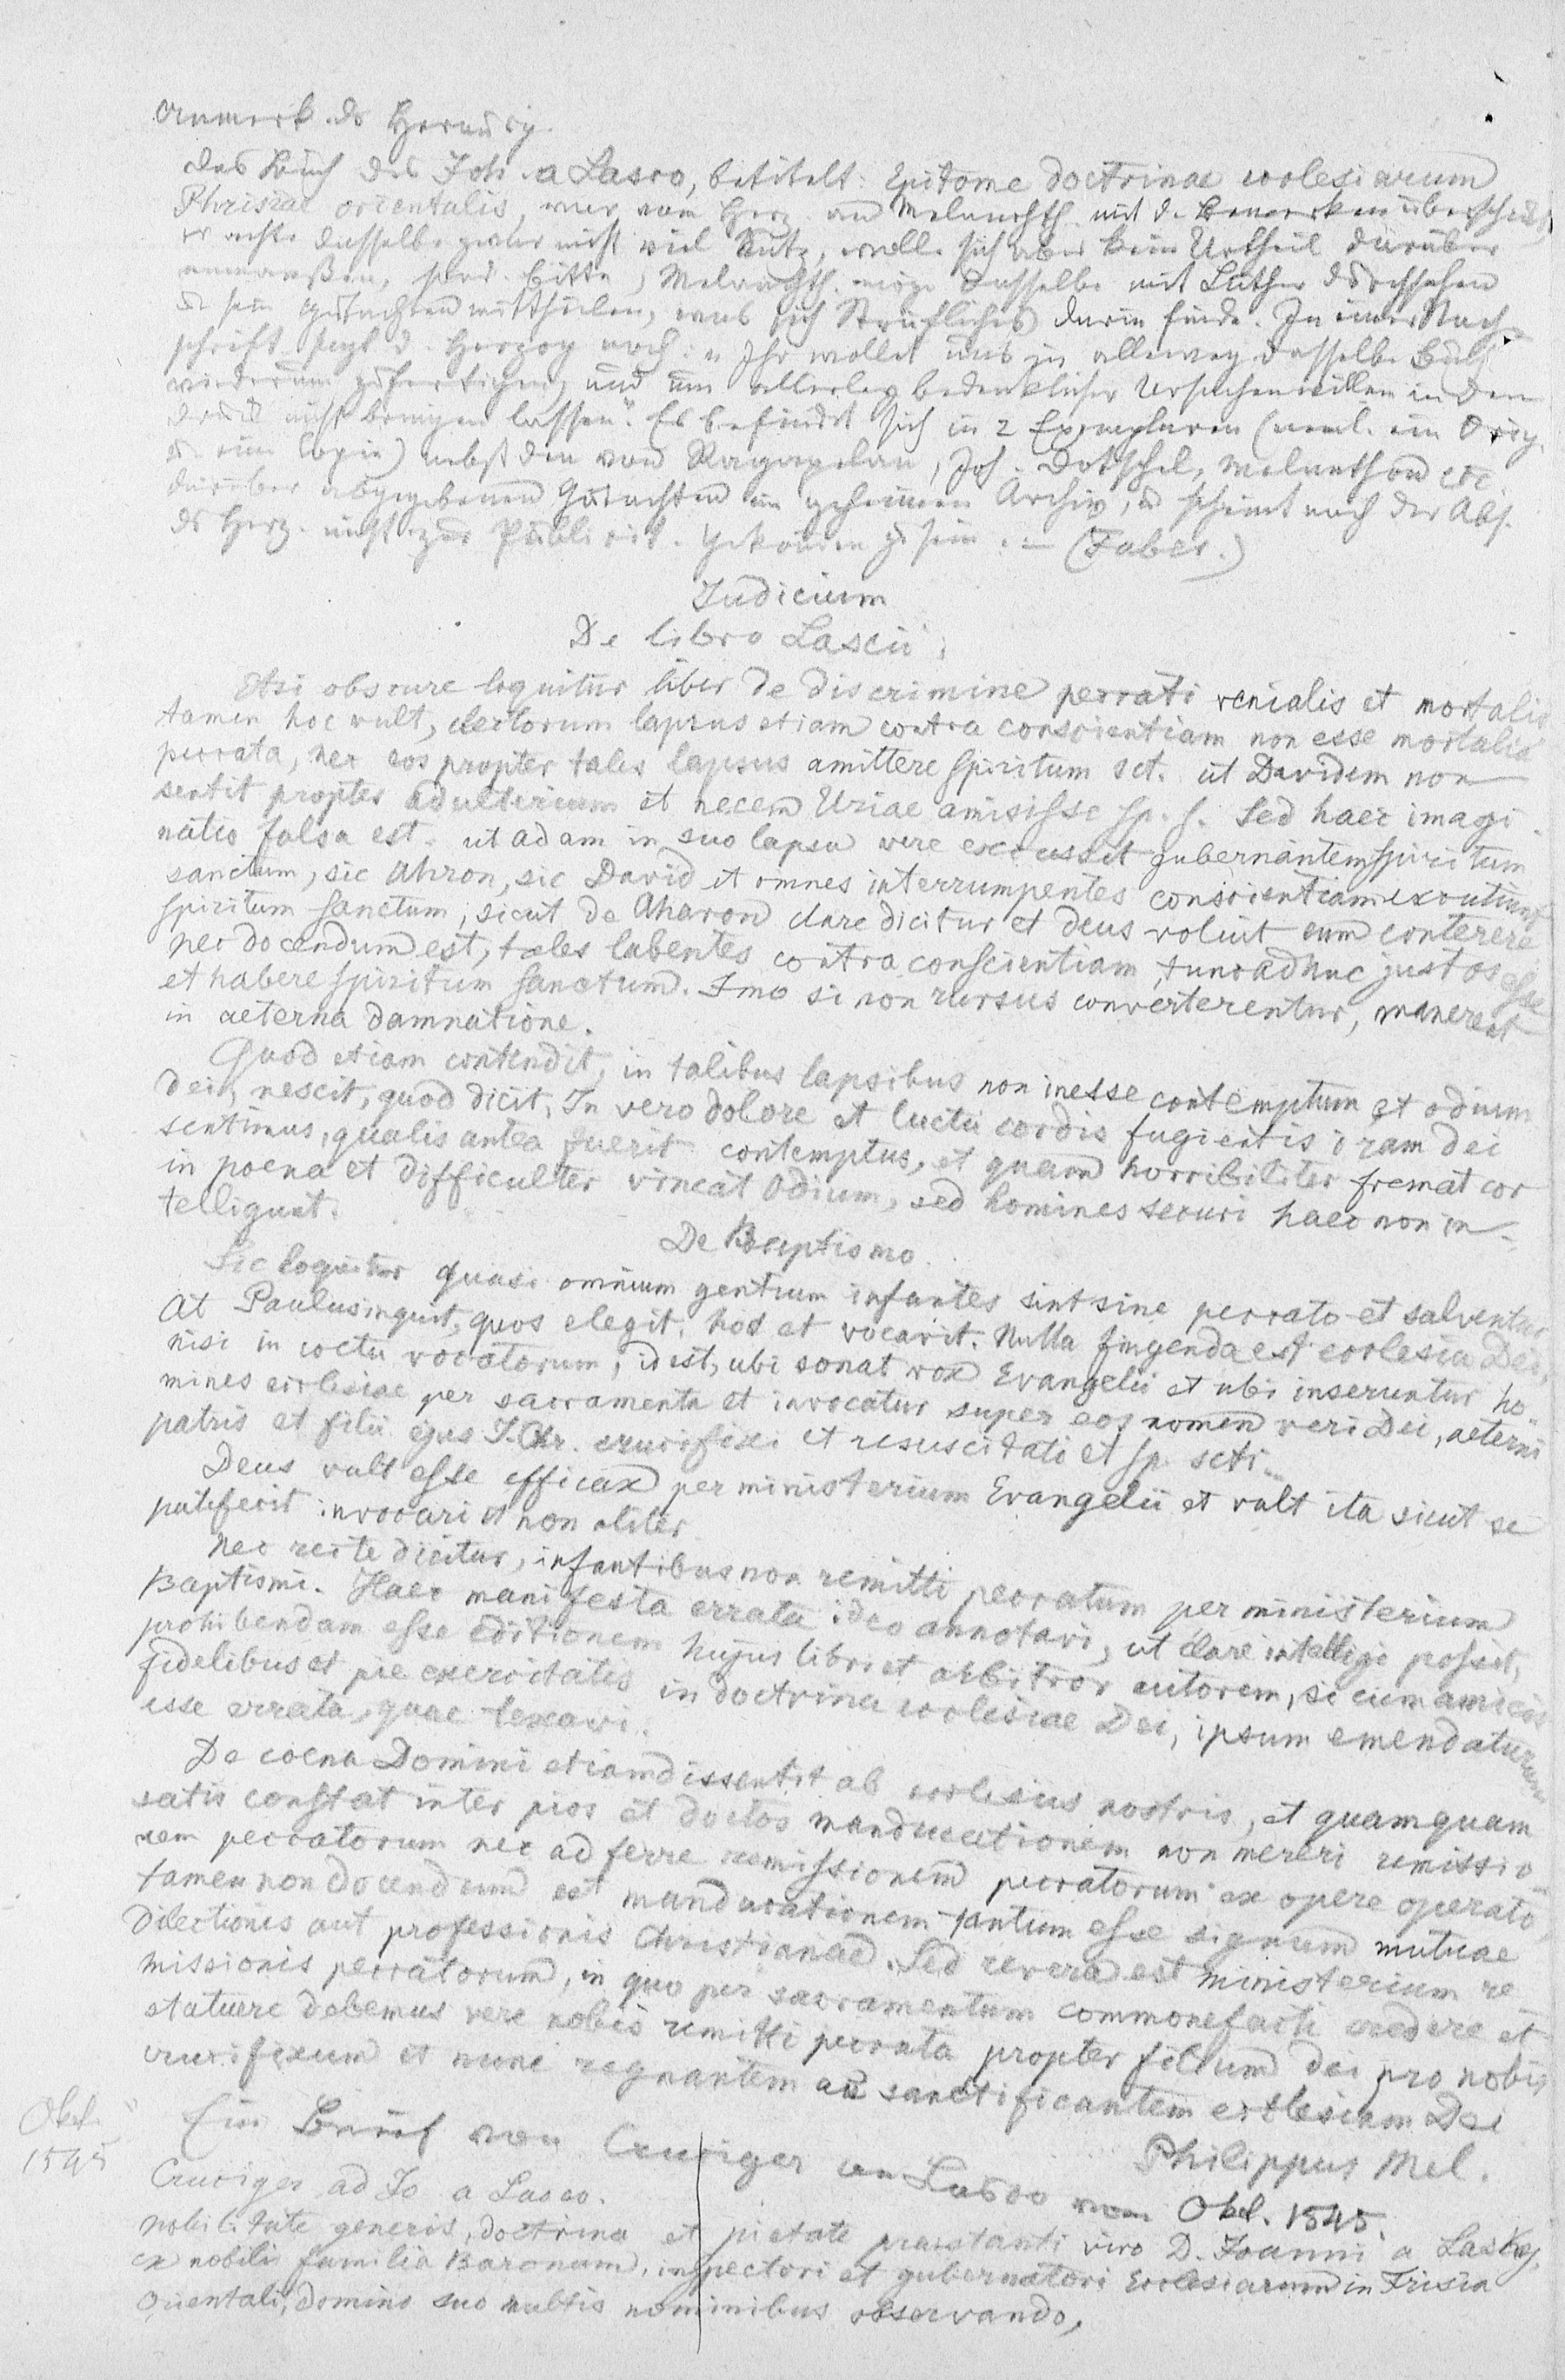 Anmerk. des Herausg.
Das Buch des Joh. a Lasco, betitelt: Epitome doctrinae ecclesiarum
Phrisiae orientalis, war vom Herz. an Melanchth. mit d. Bemerken überschickt,
er achte dasselbe zwar nicht viel Nutz, wolle sich aber kein Urtheil darüber
anmaßen, sond. bitte, Melanchth. möge dasselbe mit Luther durchsehen
u. sein Gutachten mittheilen, was sich Sträfliches darin finde. In einer Nach-
schrift sagt d. Herzog noch: „Ihr wollet uns in alleweg dasselbe Buch
wiederum zufertigen, und um allerley bedenklicher Ursachen willen in den
Druck nicht bringen lassen." Es befindet sich in 2 Exemplaren (neml. ein Orig.
u. eine Copie) nebst den von Ragagelan, Joh. Dotschel, Melanthon etc
darüber abgegebenen Gutachten im geheimen Archiv, u. scheint nach der Abs.
des Herz. nicht zur Publicit. gekommen zu sein. — (Faber.)
Iudicium
De libro Lascii.
Etsi obscure loquitur liber de discrimine peccati venialis et mortalis
tamen hoc vult, electorum lapsus etiam contra conscientiam non esse mortalia
peccata, nec eos propter tales lapsus amittere spiritum sct. ut Davidem non
sentit propter adulterium et necem Uriae amisisse sp. s. Sed haec imagi-
natio falsa est. ut adam in suo lapsu vere excussit gubernantem spiritum
sanctum, sic Ahron, sic David et omnes interrumpentes conscientiam excutiunt
spiritum sanctum, sicut de Aharon clare dicitur et deus voluit eum conterere
nec docendum est, tales labentes contra conscientiam, tunc adhuc justos esse
et habere spiritum sanctum. Imo si non rursus converterentur, manerent
in aeterna damnatione.
Quod etiam contendit, in talibus lapsibus non inesse contemptum et odium
dei, nescit, quod dicit. In vero dolore et luctu cordis fugientis iram dei
sentimus, qualis antea fuerit contemptus, et quam horribiliter fremat cor
in poena et difficulter vincat odium, sed homines securi haec non in-
telligunt.
De Baptismo.
Sic loquitur quasi omnium gentium infantes sint sine peccato et salventur,
At Paulus inquit, quos elegit, hos et vocavit. Nulla fingenda est ecclesia Dei,
nisi in coetu vocatorum, id est, ubi sonat vox Evangelii et ubi inseruntur ho-
mines ecclesiae per sacramenta et invocatur super eos nomen veri Dei, aeterni
patris et filii ejus J. Chr. crucifixi et resuscitati et sp. scti.
Deus vult esse efficax per ministerium Evangelii et vult ita sicut se
patefecit invocari et non aliter
Nec recte dicitur, infantibus non remitti peccatum per ministerium
Baptismi. Haec manifesta errata ideo annotavi, ut clare intelligi possit,
prohibendam esse editionem hujus libri et arbitror autorem, si cum amicis
fidelibus et pie exercitatis in doctrina ecclesiae Dei, ipsum emendaturum
esse errata, quae taxavi.
De coena Domini etiam dissentit ab ecclesiis nostris, et quamquam
satis constat inter pios et doctos manducationem non mereri remissio-
nem peccatorum nec adferre remissionem peccatorum ex opere operato
tamen non docendum est manducationem tantum esse signum mutuae
dilectionis aut professionis Christianae. Sed revera est ministerium re
missionis peccatorum, in quo per sacramentum commonefacti credere et
statuere debemus vere nobis remitti peccata propter filium dei pro nobis
crucifixum et nunc regnantem ac sanctificantem ecclesiam Dei
Philippus Mel.
Okt.
1545
Ein Brief von Cruciger an Lasco vom Okt. 1545.
Cruciger ad Jo a Lasco.
Nobilitate generis, doctrina et pietate praestanti viro D. Joanni a Lasky,
ex nobili familia Baronum, inspectori et gubernatori Ecclesiarum in Frisia
Orientali, domino suo multis nominibus observando,